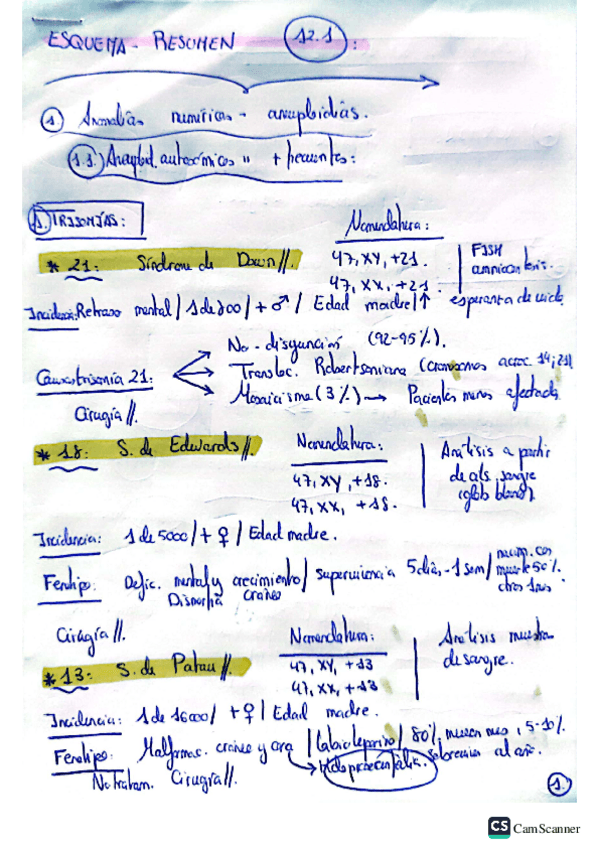 ESQUEMA - RESUMEN 12.1 :
1. Anomalías numéricas - aneuploidías.
1.1. Aneupl. autosómicas + frecuentes:
1. TRISOMÍAS:
Nomenclatura:
* 21: Síndrome de Down//.
47, XY, +21.
47, XX, +21.
FISH
amniocentesis.
Incidencia: Retraso mental / 1 de 700 / + ♂ / Edad madre / ↑ esperanza de vida
No - disyunción (92-95%).
Causas trisomía 21:
Transloc. Robertsoniana (cromosomas acroc. 14;21)
Mosaicismo (3%) → Pacientes menos afectados
Cirugía //.
* 18: S. de Edwards//.
Nomenclatura:
47, XY, +18.
47, XX, +18.
Análisis a partir
de cels. sangre
(glob blancos).
Incidencia: 1 de 5000 / + ♀ / Edad madre.
Fenotipo: Defic. mental y crecimiento / supervivencia 5 días - 1 sem /
Dismorfia craneo
50%.
Cirugía //.
* 13: S. de Patau //.
Nomenclatura:
47, XY, +13
47, XX, +13
Análisis muestra
de sangre.
Incidencia: 1 de 16000 / + ♀ / Edad madre.
Fenotipo: Malformac. craneo y cara / Labio leporino / 80% mueren mes, 5-10%
→ Holoprosencefalia. sobreviven al año.
No tratam. Cirugía //.
1.
CS CamScanner